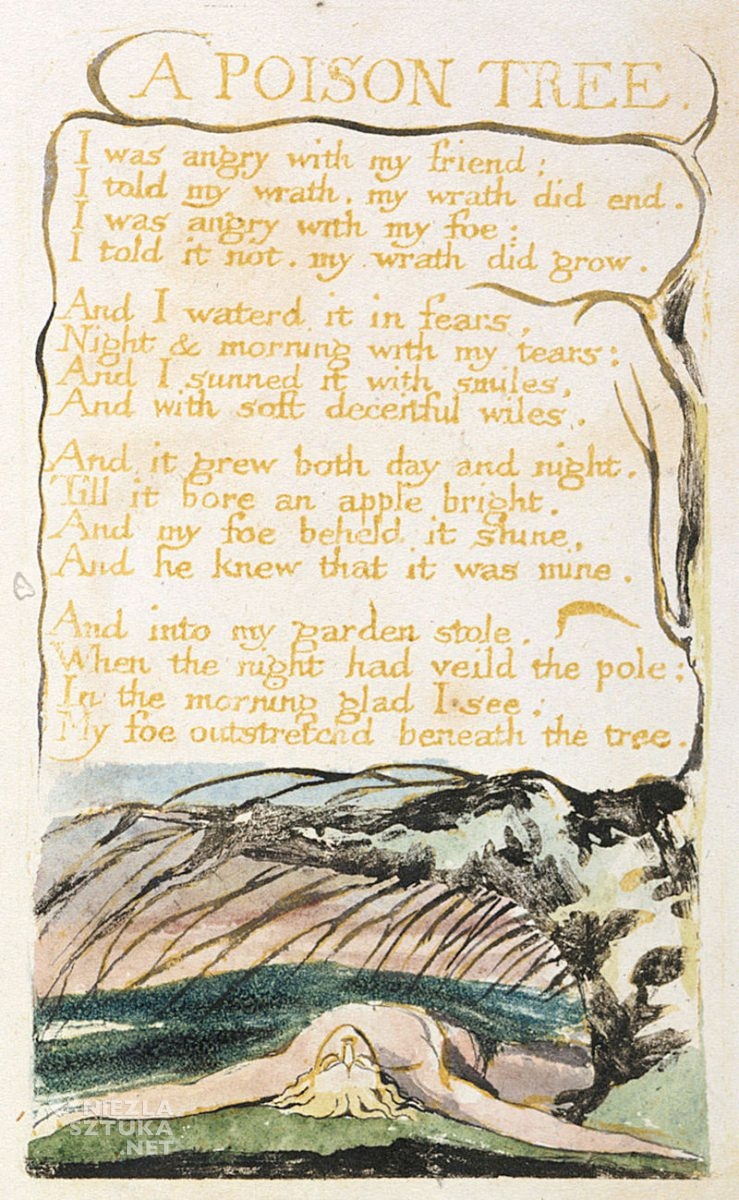 A POISON TREE.
I was angry with my friend:
I told my wrath. my wrath did end.
I was angry with my foe:
I told it not. my wrath did grow.
And I waterd it in fears,
Night & morning with my tears:
And I sunned it with smiles,
And with soft deceitful wiles.
And it grew both day and night.
Till it bore an apple bright.
And my foe beheld it shine,
And he knew that it was mine.
And into my garden stole.
When the night had veild the pole:
In the morning glad I see:
My foe outstretchd beneath the tree.
NIEZŁA
SZTUKA
.NET